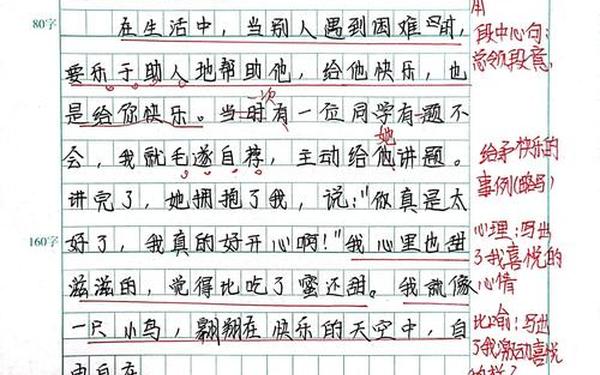 用
80字
在生活中，当别人遇到困难时，
段中心句：
总领段意，
要乐于助人地帮助他，给他快乐，也
是给你快乐。当时有一位同学有题不
一次
她
会，我就毛遂自荐，主动给他讲题。
给予快乐的
事例(略写)
讲完了，她拥抱了我，说："你真是太
160字
好了，我真的好开心啊！"我心里也甜
心理：写出
了我喜悦的
心情
滋滋的，觉得比吃了蜜还甜。我就像
一只小鸟，翱翔在快乐的天空中，自
比喻：写出
了我激动喜悦
由自在